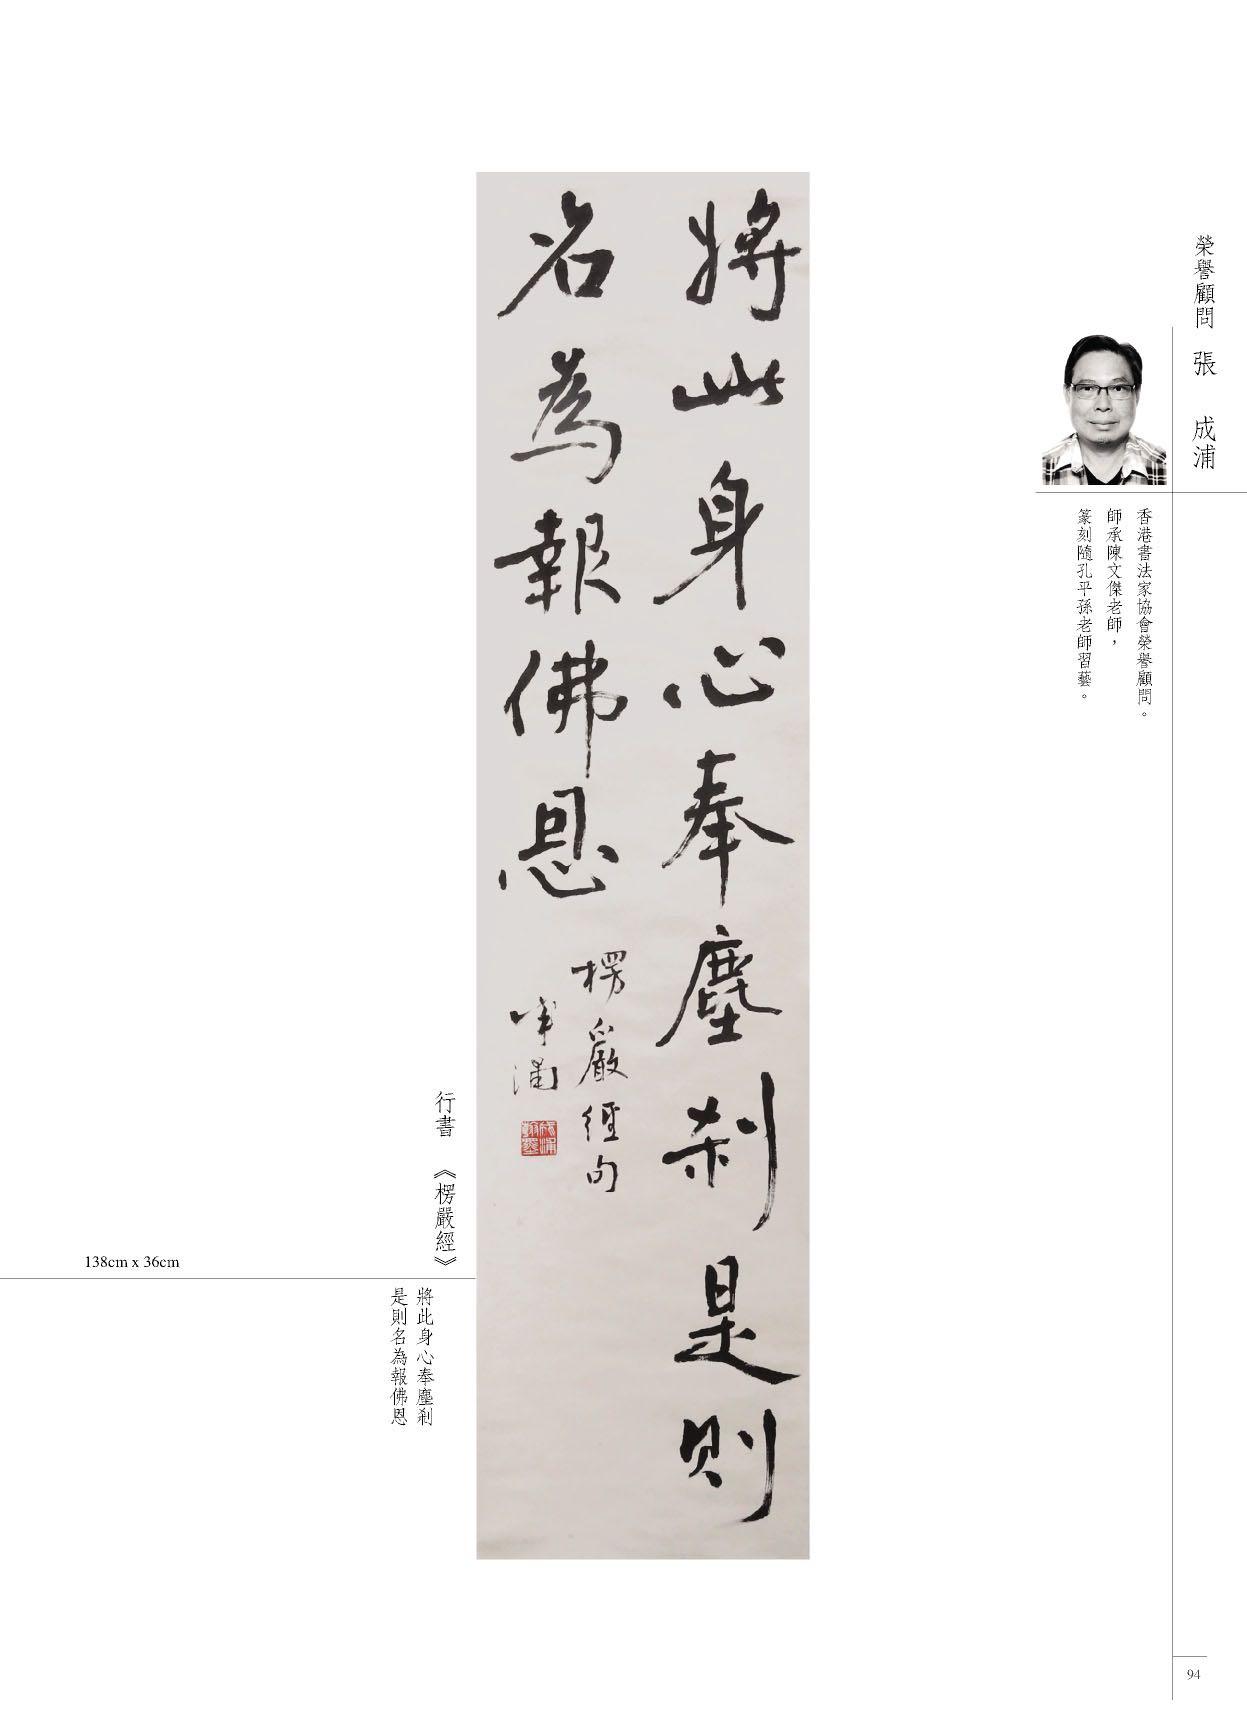 榮譽顧問 張 成浦
香港書法家協會榮譽顧問。
師承陳文傑老師，
篆刻隨孔平孫老師習藝。
將此身心奉塵剎是則
名為報佛恩
楞嚴經句
成浦
行書 《楞嚴經》
138cm x 36cm
將此身心奉塵剎
是則名為報佛恩
94